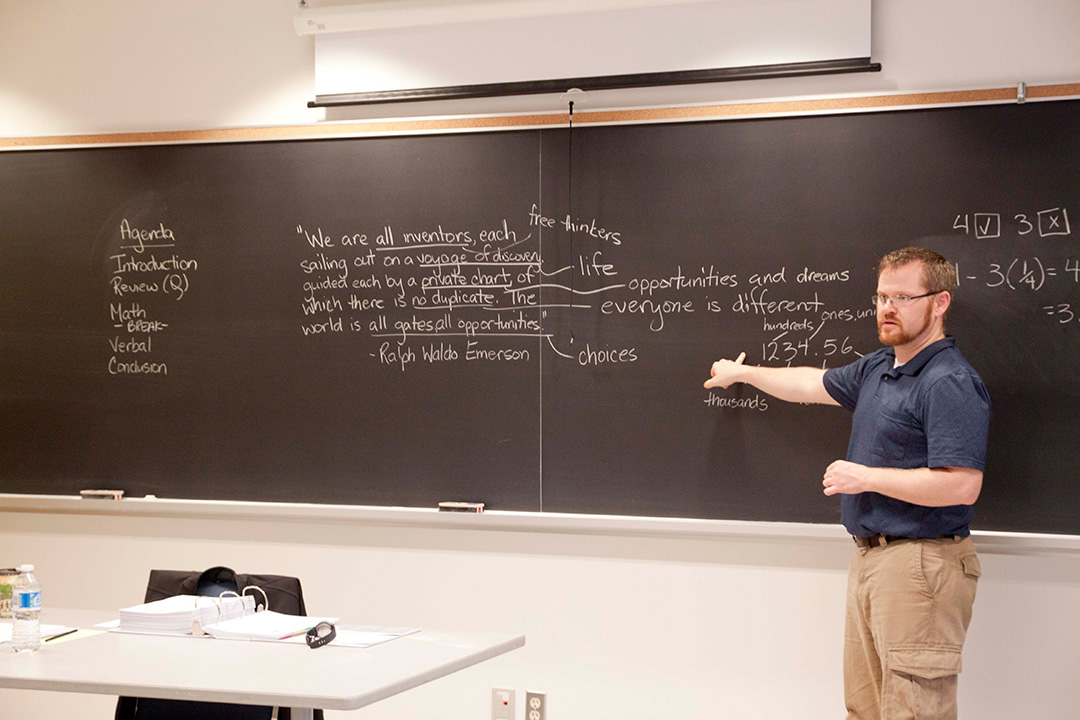 Agenda
Introduction
Review (Q)
Math
- BREAK -
Verbal
Conclusion
"We are all inventors, each
sailing out on a voyage of discovery,
guided each by a private chart of
which there is no duplicate. The
world is all gates, all opportunities."
-Ralph Waldo Emerson
free thinkers
life
opportunities and dreams
everyone is different
choices
hundreds
ones,
1234.56
thousands
4 ✓ 3 x
- 3(1/4) = 4
= 3.